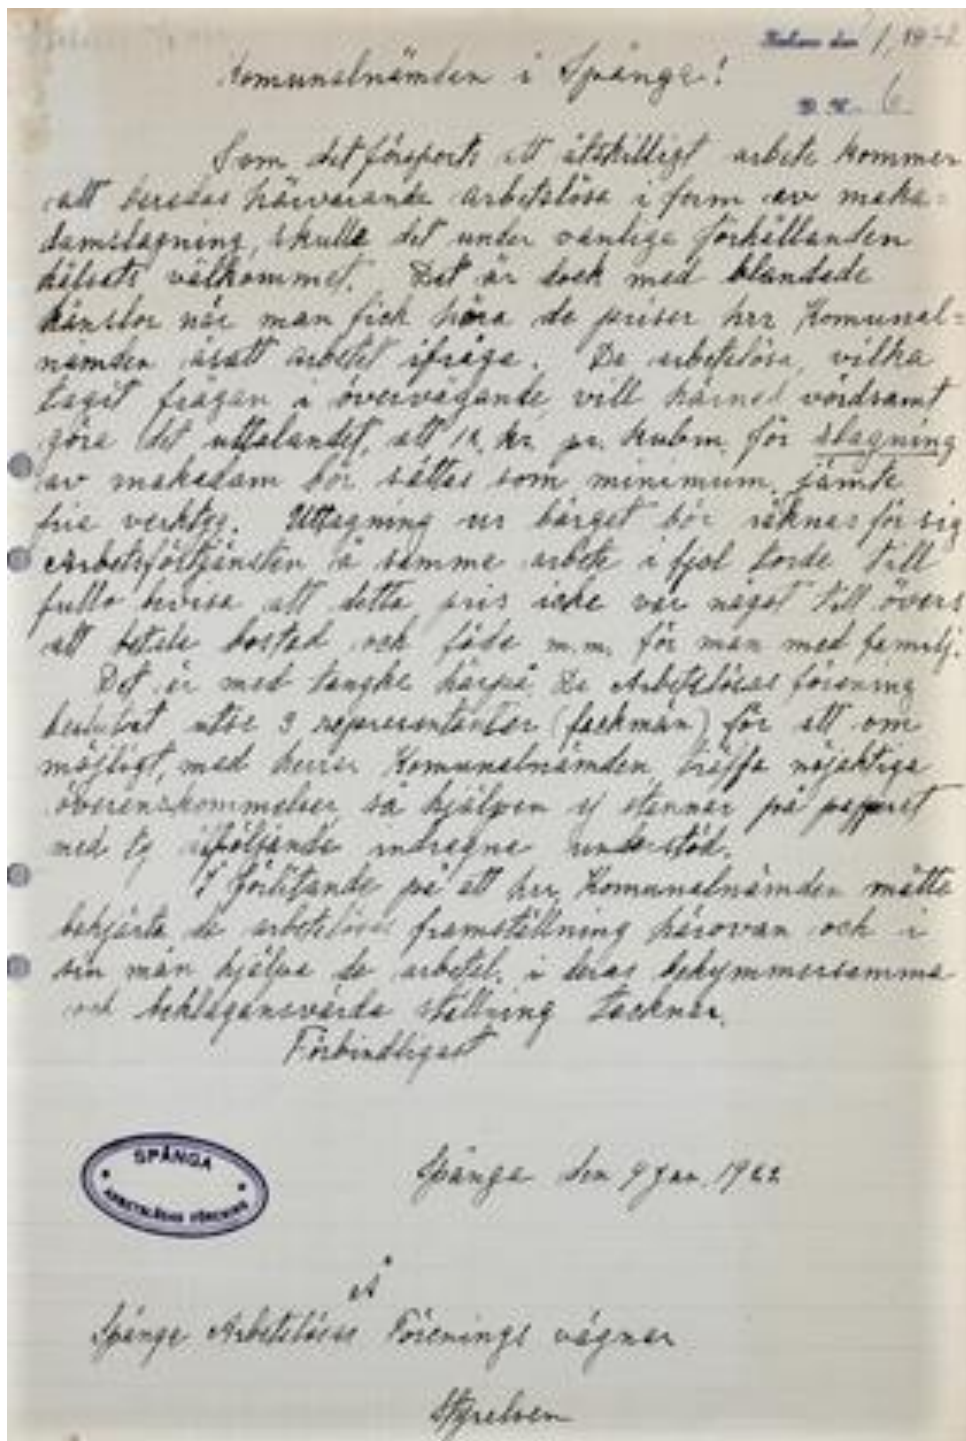 Inkom den 9/1 1922
Komunalnämden i Spånga!
D. N. 6
Som det försports att åtskilligt arbete kommer
att beredas härvarande arbetslösa i form av maka=
damslagning, skulle det under vanliga förhållanden
hälsats välkommet. Det är dock med blandade
känslor när man fick höra de priser hrr Komunal=
nämden åsatt arbetet ifråga. De arbetslösa, vilka
tagit frågan i övervägande, vill härmed vördsamt
göra det uttalandet, att kr. pr. kubm. för slagning
av makadam bör sättas som minimum, jämte
fria verktyg. Uttagning ur bärget bör räknas för sig
Arbetsförtjänsten å samma arbete i fjol torde till
fullo bevisa att detta pris icke var något till övers
att betala bostad och föda m.m. för man med familj.
Det är med tanke härpå De Arbetslösas förening
beslutat utse 3 representanter (fackmän) för att om
möjligt, med herrar Komunalnämden träffa nöjaktiga
överenskommelser, så hjälpen ej stannar på papperet
med ty åtföljande indragna understöd.
I förlitande på att hrr Komunalnämden måtte
behjärta de arbetslösas framställning härovan och i
sin mån hjälpa de arbetsl. i deras bekymmersamma
och beklagansvärda ställning tecknar.
Förbindligast
SPÅNGA
ARBETSLÖSAS FÖRENING
Spånga den 9 Jan. 1922
Å
Spånga Arbetslösas Förenings vägnar
Styrelsen